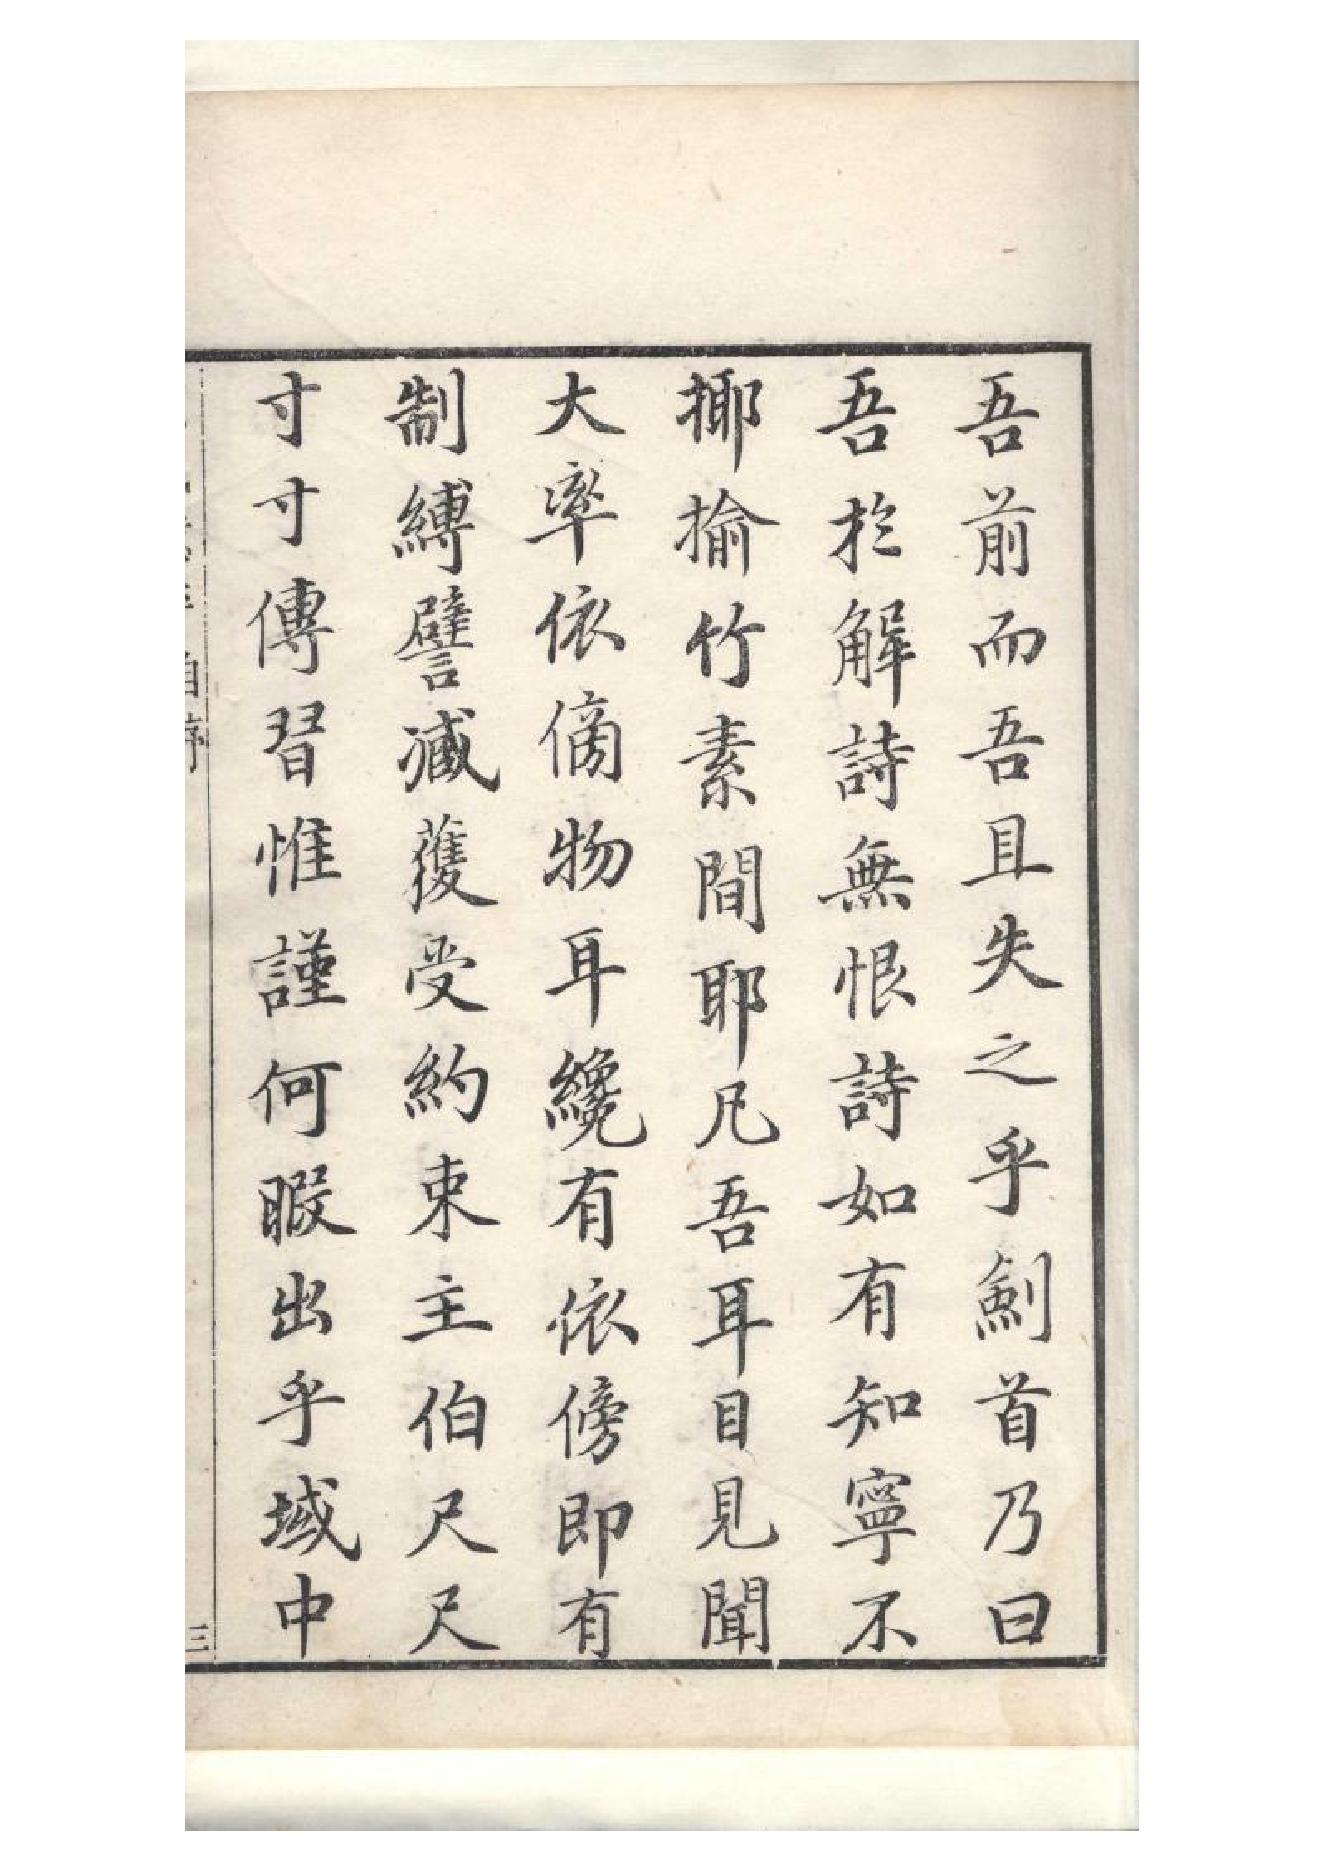 吾前而吾且失之乎劍首乃曰
吾於解詩無恨詩如有知寧不
揶揄竹素間耶凡吾耳目見聞
大率依傍物耳纔有依傍即有
制縛譬臧獲受約束主伯尺尺
寸寸傳習惟謹何暇出乎域中
自序
三